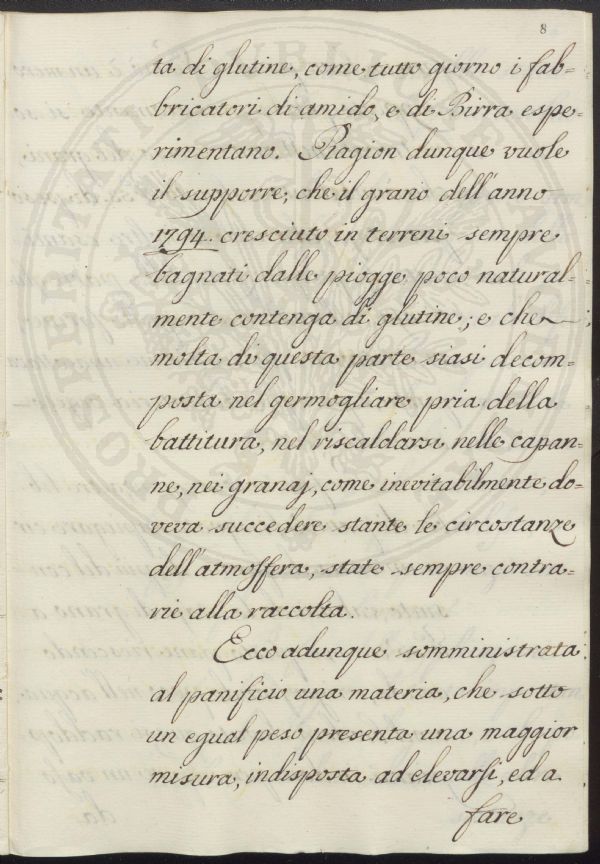 8
ta di glutine, come tutto giorno i fab=
bricatori di amido, e di Birra espe=
rimentano. Ragion dunque vuole
il supporre, che il grano dell'anno
1794. cresciuto in terreni sempre
bagnati dalle piogge poco natural=
mente contenga di glutine; e che
molta di questa parte siasi decom=
posta nel germogliare pria della
battitura, nel riscaldarsi nelle capan=
ne, nei granaj, come inevitabilmente do=
veva succedere stante le circostanze
dell'atmosfera, state sempre contra=
rie alla raccolta.
Ecco adunque somministrata
al panificio una materia, che sotto
un egual peso presenta una maggior
misura, indisposta ad elevarsi, ed a
fare